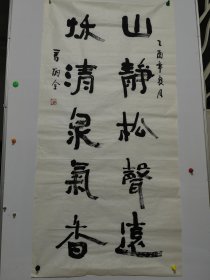 山靜松聲遠
乙酉年
秋清泉氣香